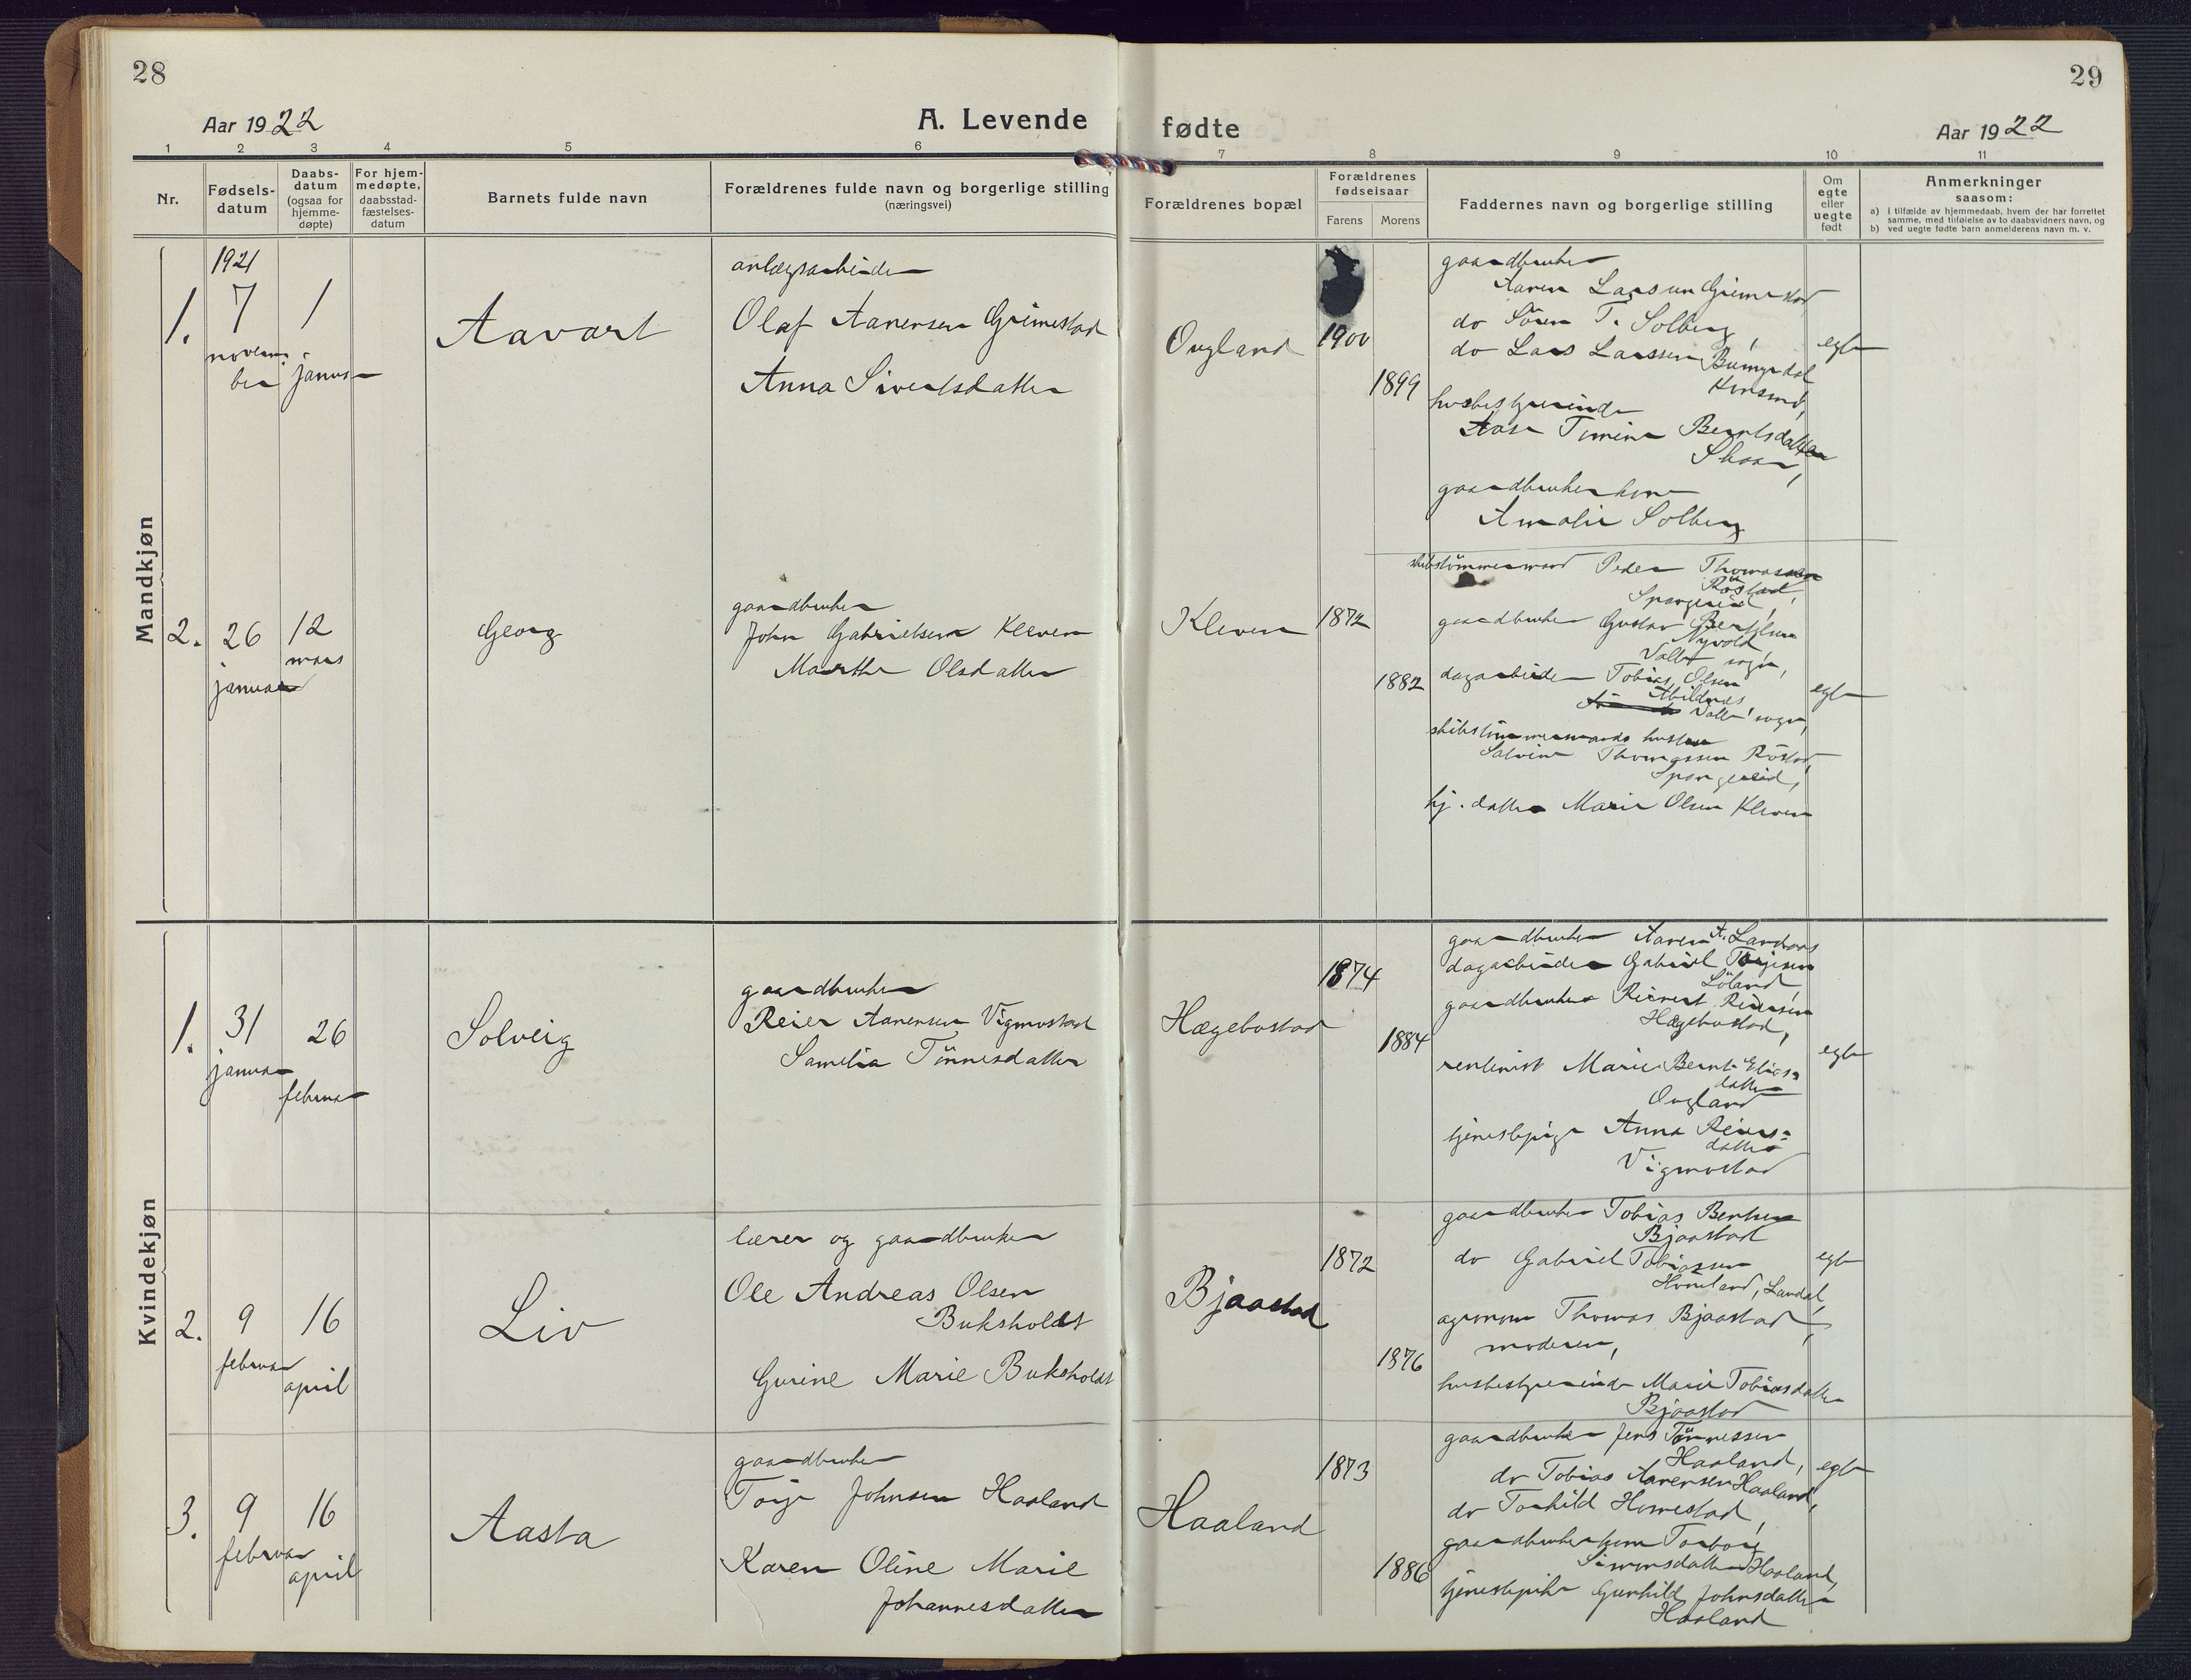 28
29
Aar 1922
A. Levende
fødte
Aar 1922
1 2 3 4 5 6 7 8 9 10 11
Nr.
Fødsels-
datum
Daabs-
datum
(ogsaa for
hjemme-
døpte)
For hjem-
medøpte,
daabsstad-
fæstelses-
datum
Barnets fulde navn
Forældrenes fulde navn og borgerlige stilling
(næringsvei)
Forældrenes bopæl
Forældrenes
fødselsaar
Farens
Morens
Faddernes navn og borgerlige stilling
Om
egte
eller
uegte
født
Anmerkninger
saasom:
a) i tilfælde av hjemmedaab, hvem der har forrettet
samme, med tilføielse av to daabsvidners navn, og
b) ved uegte fødte barn anmelderens navn m. v.
Mandkjøn
1.
1921
7
novem
ber
1
januar
Aavart
anlægsarbeider
Olaf Aanensen Grimestad
Anna Sivertsdatter
Ougland
1900
1899
gaardbruker
Aanen Larsen Grimestad
do Sören T. Solberg,
do Lars Larssen
husbestyrerinde
Aase Berntsdatter
Skaar,
gaardbrukerkone
Amalie Solberg
egte
2.
26
januar
12
mars
Georg
gaardbruker
John Gabrielsen Kleven
Marthe Olsdatter
Kleven
1872
1882
skibstömmermand Peder Thomassen
Röstad,
Spangereid,
gaardbruker Gustav Bertilsen
Nyvold
Valle sogn,
dagarbeider Tobias Olsen
Abildnes
Valle sogn,
skibstömmermands hustru
Salvine Thomassen Röstad,
Spangereid,
hj. datter Marie Olsen Kleven
egte
Kvindekjøn
1.
31
januar
26
februar
Solveig
gaardbruker
Reier Aanensen Vigmostad
Samelia Tönnesdatter
Hægebostad
1874
1884
gaardbruker Aanen A. Landaas
dagarbeider Gabriel Torjesen
Löland,
gaardbruker Reinert Reiersen
Hægebostad,
rentenist Marie Bernt Elias=
datter
Ougland
tjenestepige Anna Reiers=
datter
Vigmostad
egte
2.
9
februar
16
april
Liv
lærer og gaardbruker
Ole Andreas Olsen
Buksholdt
Gurine Marie Buksholdt
Bjaastad
1872
1876
gaardbruker Tobias Berthsen
Bjaastad
do Gabriel Tobiassen
Homeland, Laudal,
agronom Thomas Bjaastad,
moderen,
husbestyrerinde Marie Tobiasdatter
Bjaastad
egte
3.
9
februar
16
april
Aasta
gaardbruker
Torje Johnsen Haaland
Karen Oline Marie
Johannesdatter
Haaland
1873
1886
gaardbruker Jens Tönnessen
Haaland,
do Tobias Aanensen Haaland,
do Torkild Homestad,
gaardbrukerkone Torborg
Simonsdatter Haaland,
tjenestepike Gunhild Johnsdatter
Haaland
egte